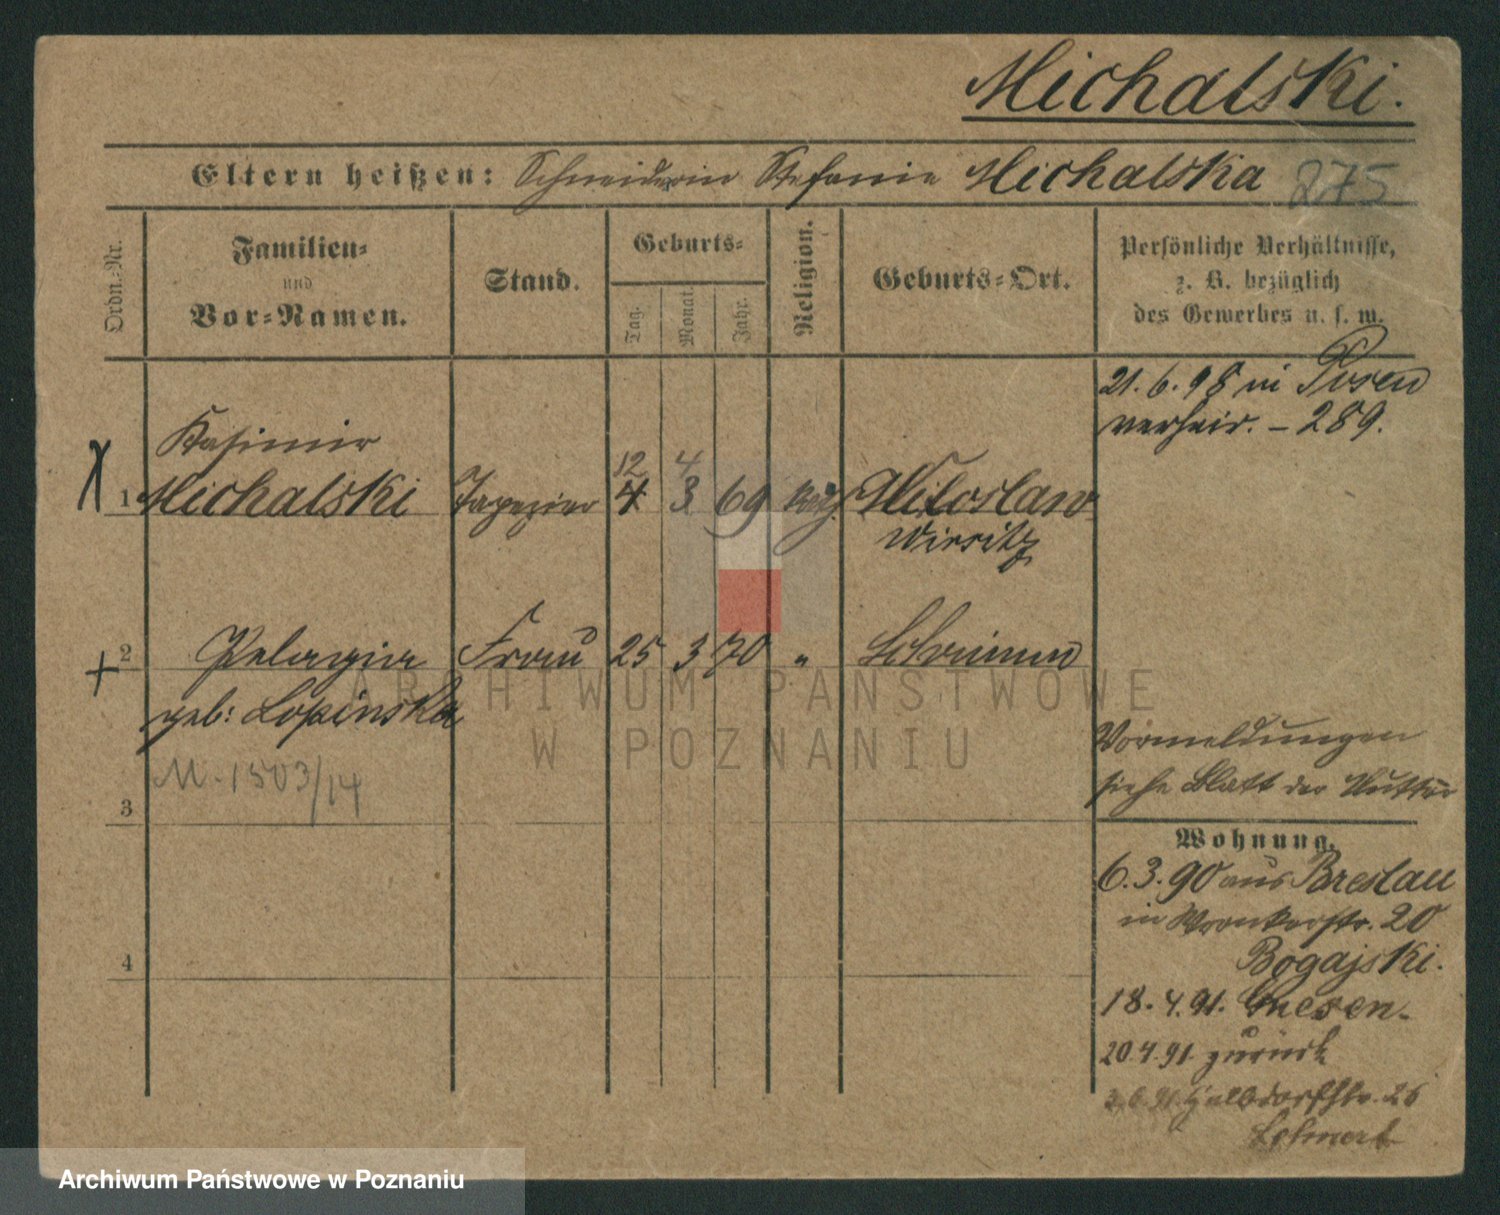 Michalski.
Eltern heißen: Schneiderin Stefanie Michalska 275
Ordn.-Nr.
Familien- und Vor-Namen.
Stand.
Geburts-
Tag.
Monat.
Jahr.
Religion.
Geburts-Ort.
Persönliche Verhältnisse,
z. B. bezüglich
des Gewerbes u. s. w.
21. 6. 98 in Posen
verheir. - 289.
Kasimir
12 4
1 Michalski Tapezier 4 3 69 kath. Miloslaw
Wirsitz
2 Pelagia Frau 25 3 70 " Schrimm
geb: Lopinska
M. 1503/14
3
4
Vormeldungen
siehe Blatt der Mutter
Wohnung.
6. 3. 90 aus Breslau
in Wronkerstr. 20
Bogajski.
18. 4. 91. Gnesen.
20. 4. 91. zurück
6. 91. Halbdorfstr. 26
ARCHIWUM PAŃSTWOWE
W POZNANIU
Archiwum Państwowe w Poznaniu